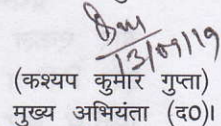 13/09/19
(कश्यप कुमार गुप्ता)
मुख्य अभियंता (द०)।